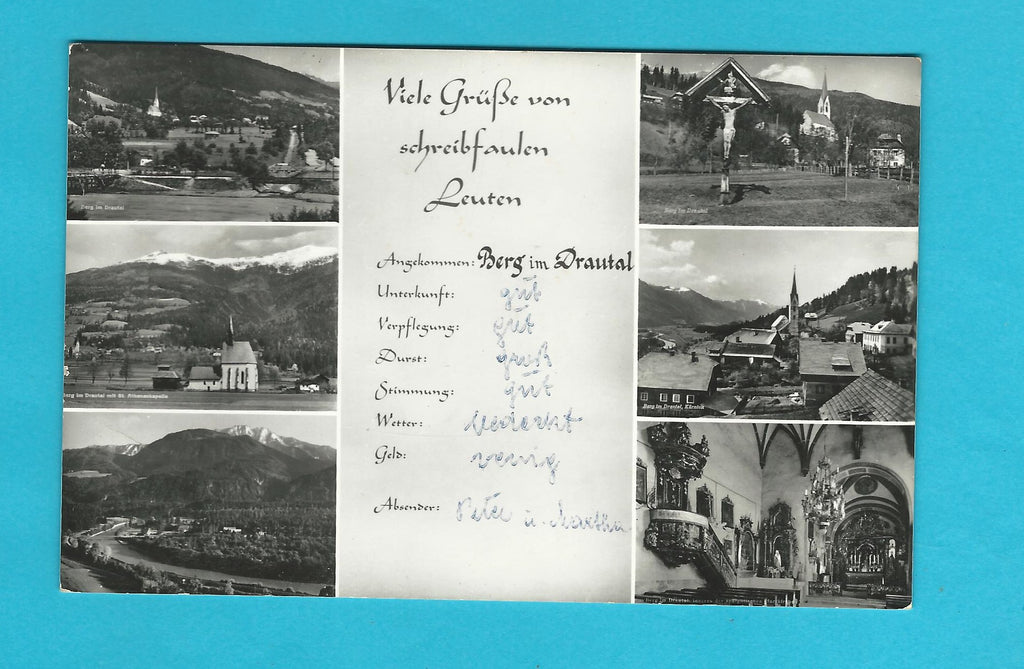 Viele Grüße von
schreibfaulen
Leuten
Angekommen: Berg im Drautal
Unterkunft: gut
Verpflegung: gut
Durst: groß
Stimmung: gut
Wetter: bedeckt
Geld: wenig
Absender: Peter u. Martha
Berg im Drautal
Berg im Drautal mit St. Athanasкapelle
Berg im Drautal
Berg im Drautal, Kärnten
Berg im Drautal, Inneres der